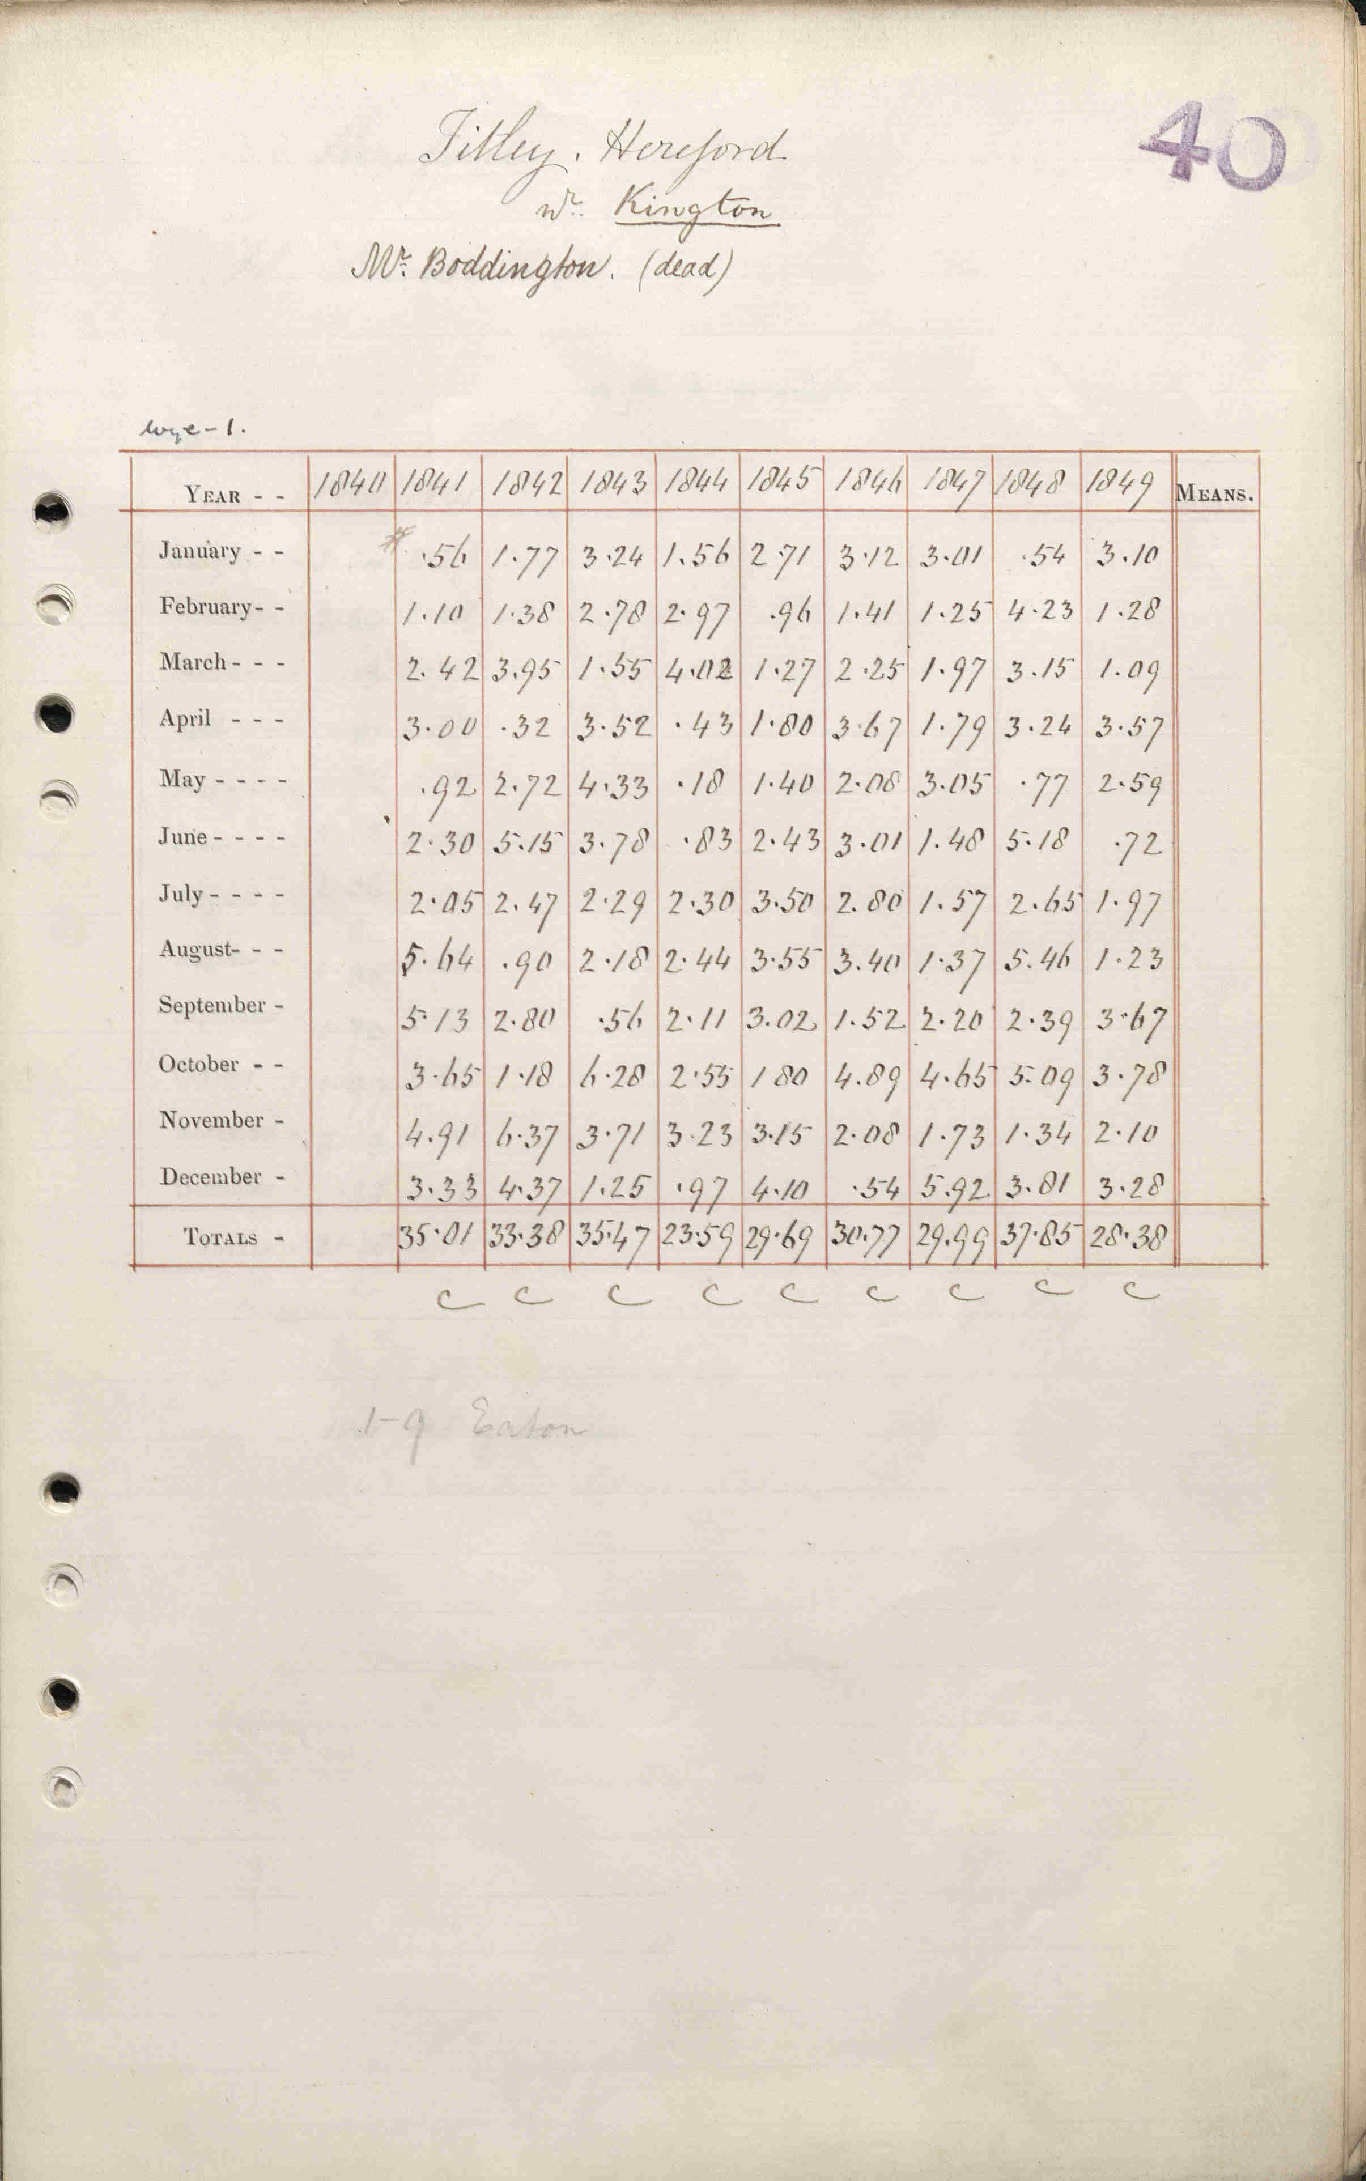 40
Titley. Hereford
Nr. Kington
Mr. Boddington. (dead)
Wye-1.
YEAR - - 1840 1841 1842 1843 1844 1845 1846 1847 1848 1849 MEANS.
January - - # .56 1.77 3.24 1.56 2.71 3.12 3.01 .54 3.10
February- - 1.10 1.38 2.78 2.97 .96 1.41 1.25 4.23 1.28
March- - - 2.42 3.95 1.55 4.02 1.27 2.25 1.97 3.15 1.09
April - - - 3.00 .32 3.52 .43 1.80 3.67 1.79 3.24 3.57
May - - - - .92 2.72 4.33 .18 1.40 2.08 3.05 .77 2.59
June- - - - 2.30 5.15 3.78 .83 2.43 3.01 1.48 5.18 .72
July- - - - 2.05 2.47 2.29 2.30 3.50 2.80 1.57 2.65 1.97
August- - - 5.64 .90 2.18 2.44 3.55 3.40 1.37 5.46 1.23
September - 5.13 2.80 .56 2.11 3.02 1.52 2.20 2.39 3.67
October - - 3.65 1.18 6.28 2.55 1 80 4.89 4.65 5.09 3.78
November - 4.91 6.37 3.71 3.23 3.15 2.08 1.73 1.34 2.10
December - 3.33 4.37 1.25 .97 4.10 .54 5.92 3.81 3.28
TOTALS - 35.01 33.38 35.47 23.59 29.69 30.77 29.99 37.85 28.38
C C C C C C C C C
1-9 Eaton